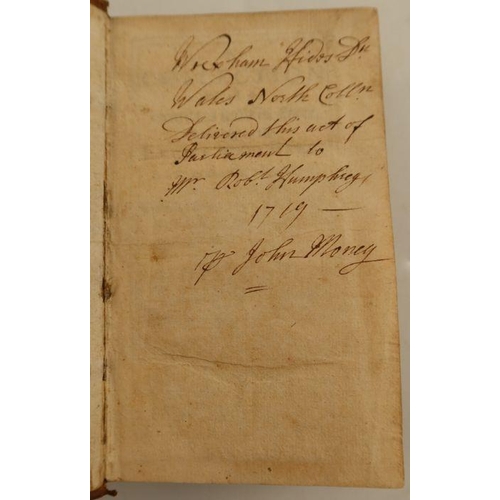 Wrexham Hides Dn
Wales North Colln
Delivered this act of
Parliament to
Mr. Robt. Humphreys
1719 —
⅌ John Money